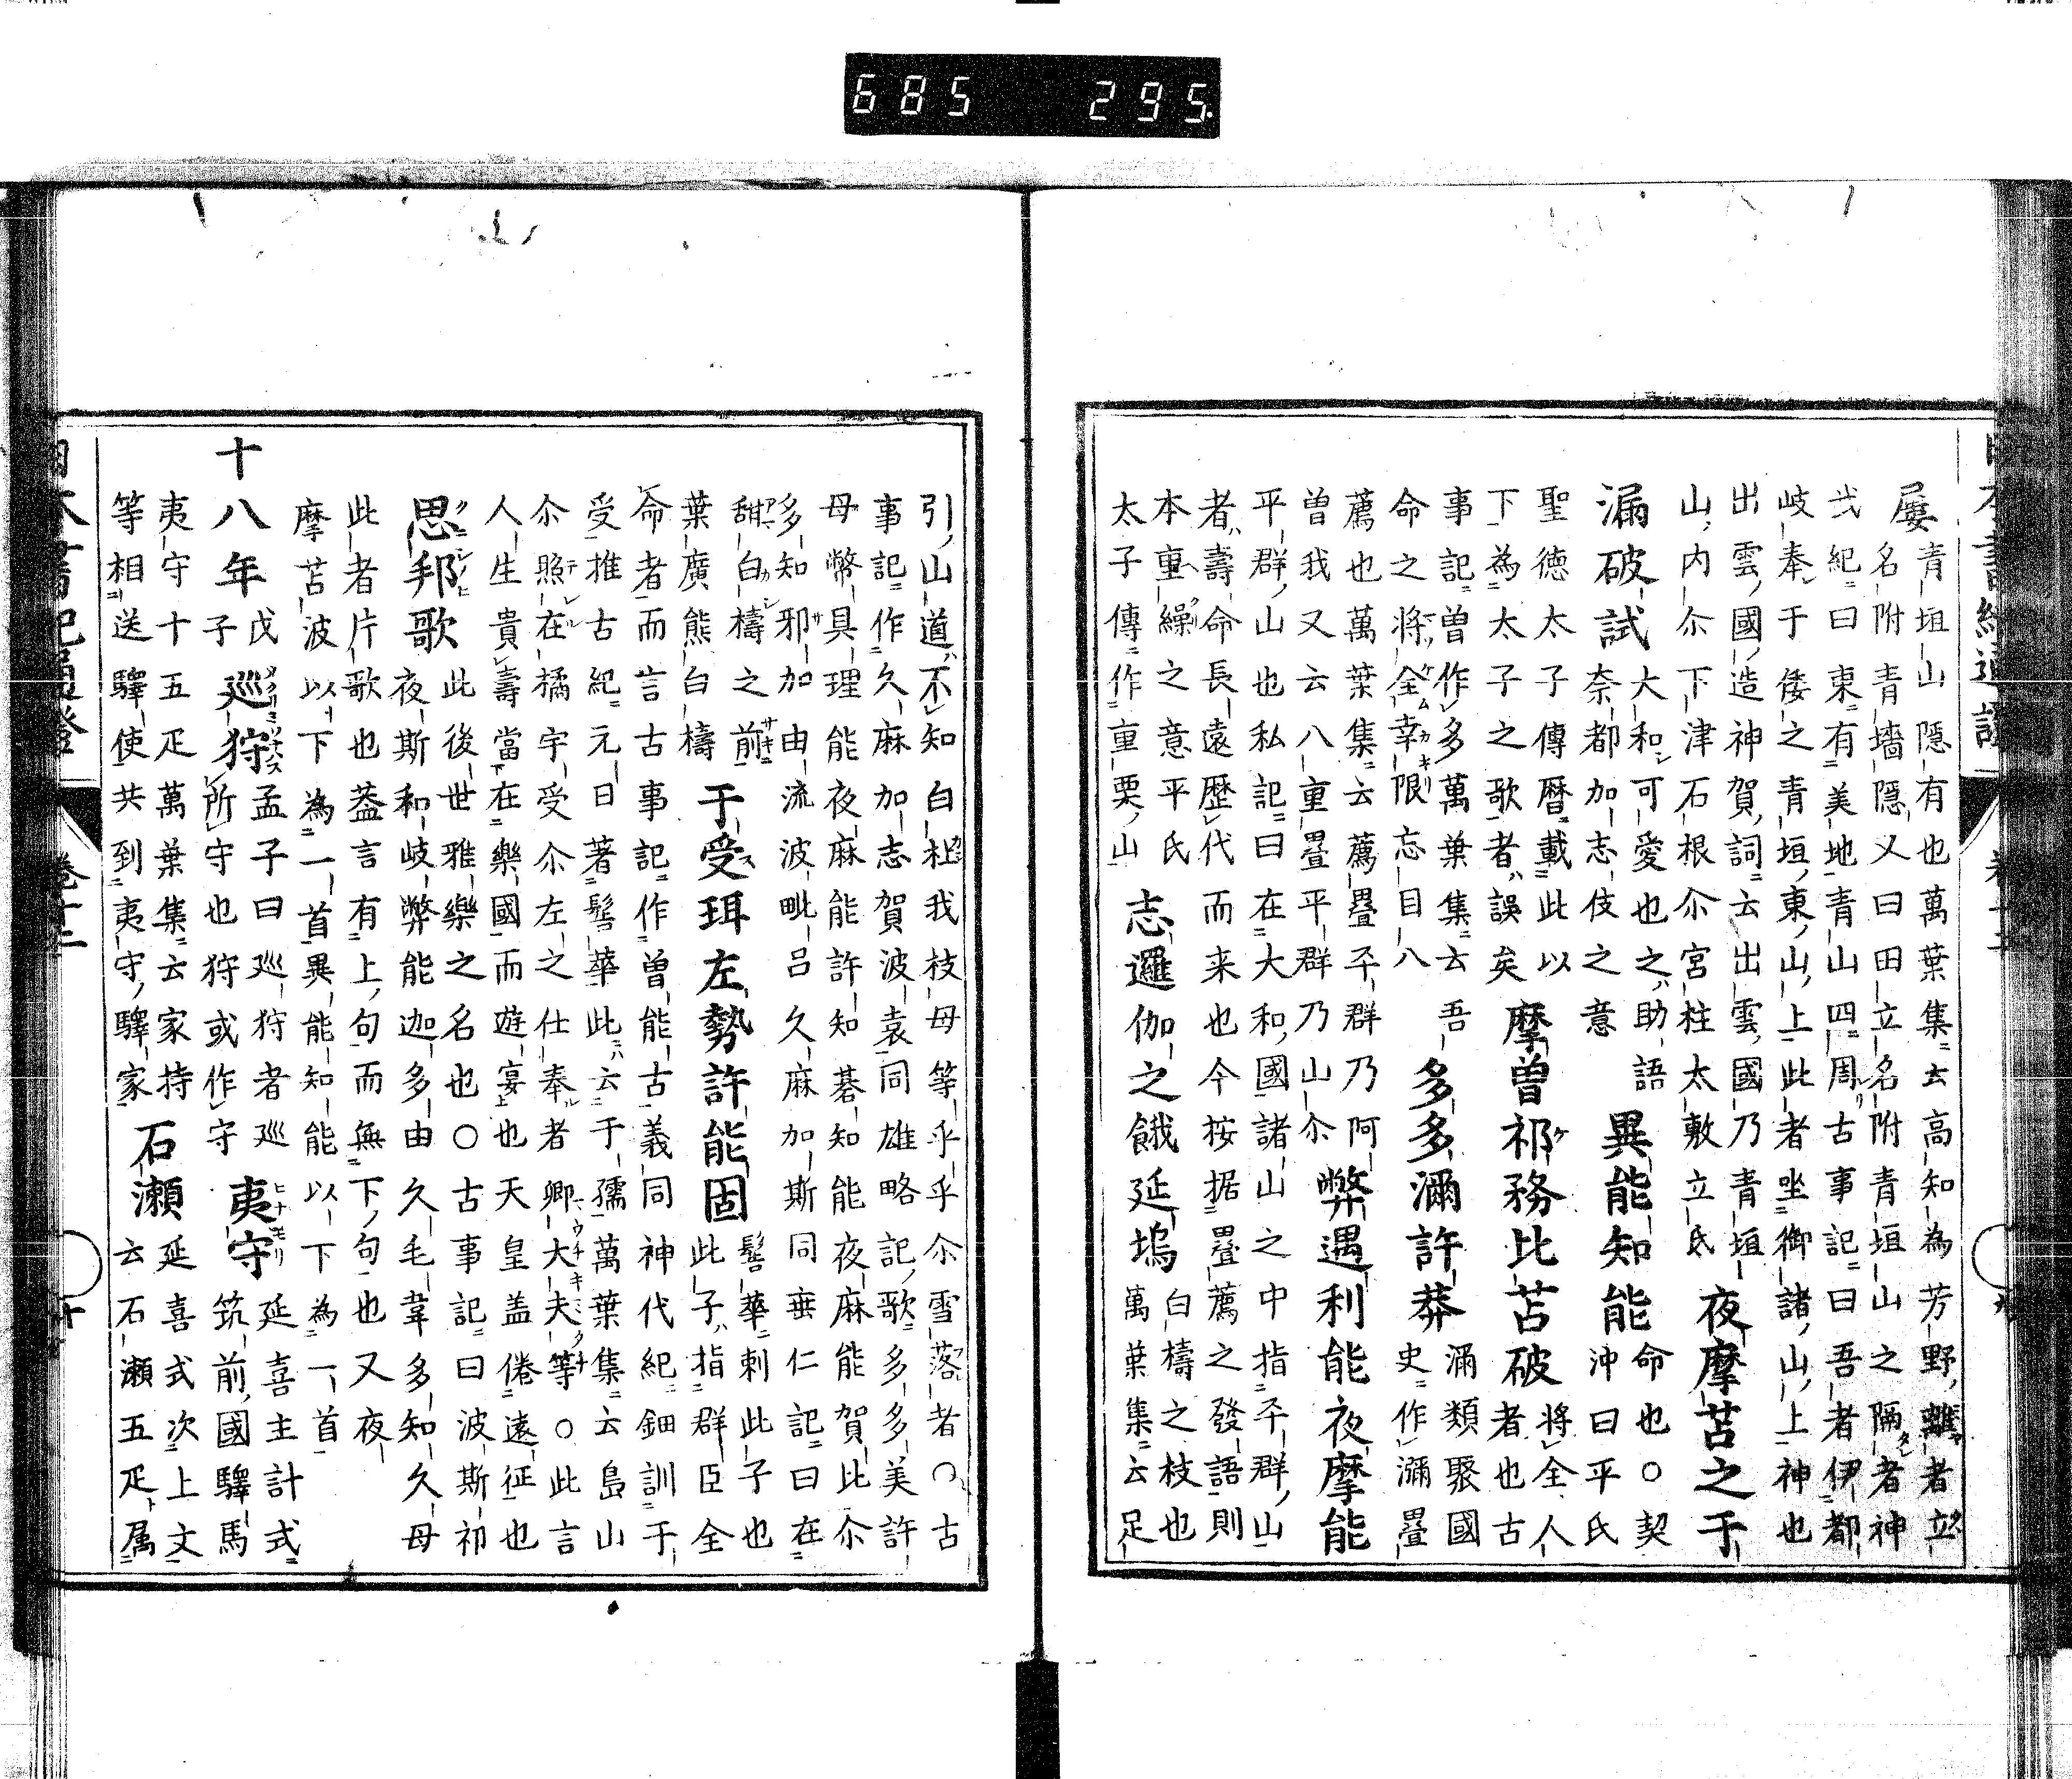 685 295
屢青垣山隱有也萬葉集云高知為芳野離者立
名附青墻隱又曰田立名附青垣山之隔者神
武紀曰東有美地青山四周古事記曰吾者伊都
岐奉于倭之青垣東山上此者坐御諸山上神也
出雲國造神賀詞云出雲國乃青垣
山内尒下津石根尒宮柱太敷立氐
夜摩苫之于
漏破試
大和可愛也之助語
奈都加志伎之意
異能知能
命也○契
沖曰平氏
聖德太子傳曆載此以
下為太子之歌者誤矣
摩曽祁務比苫破
將全人
者也古
事記曽作多萬葉集云吾
命之將全幸限忘目八
多多瀰許莽
瀰類聚國
史作瀰疊
薦也萬葉集云薦疊平群乃阿
曽我又云八重疊平群乃山尒
弊遇利能夜摩能
平群山也私記曰在大和國諸山之中指平群山
者壽命長遠歷代而来也今按据疊薦之發語則
本重繰之意平氏
太子傳作重栗山
志邐伽之餓延塢
白檮之枝也
萬葉集云足
引山道不知白杜我枝母等乎乎尒雪落者○古
事記作久麻加志賀波袁同雄略記歌多多美許
母幣具理能夜麻能許知碁知能夜麻能賀比尒
多知邪加由流波毗呂久麻加斯同垂仁記曰在
甜白檮之前
葉廣熊白檮
于受珥左勢許能固
髻華刺此子也
此子指群臣全
命者而言古事記作曽能古義同神代紀鈿訓于
受推古紀元日著髻華此云于孺萬葉集云島山
尒照在橘宇受尒左之仕奉者卿大夫等○此言
人生貴壽當在樂國而遊宴也天皇盖倦遠征也
思邦歌
此後世雅樂之名也○古事記曰波斯祁
夜斯和岐弊能迦多由久毛韋多知久母
此者片歌也葢言有上句而無下句也又夜
摩苫波以下為一首異能知能以下為一首
十八年
戊
子
巡狩
孟子曰巡狩者巡
所守也狩或作守
夷守
延喜主計式
筑前國驛馬
夷守十五疋萬葉集云家持
等相送驛使共到夷守驛家
石瀬
延喜式次上文
云石瀬五疋属
日本書紀通證
卷十二